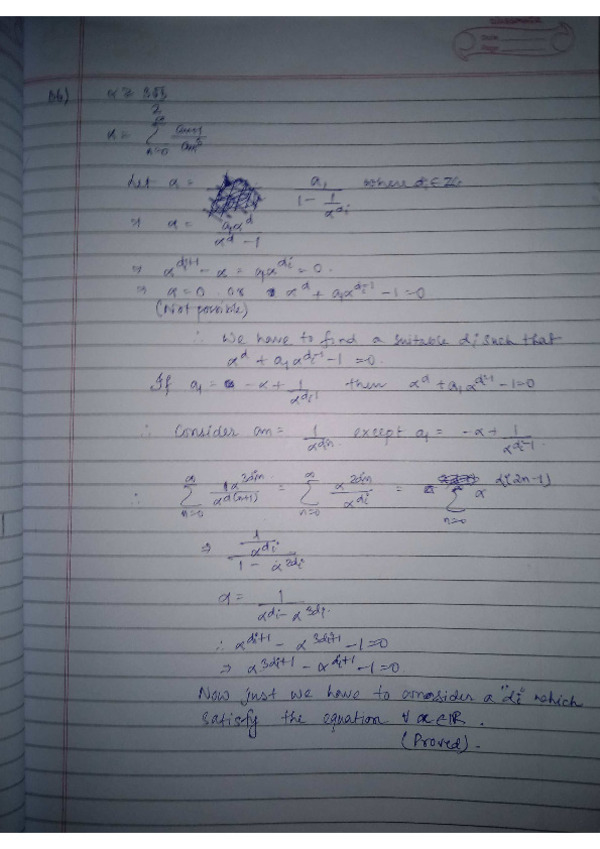 Date
Page
α ≥ 3√3 / 2
α = ∑_{n=0}^{∞} a_{n+1} / a_n^3
Let α = a_1 / (1 - 1/α^{d_i}) where
⇒ α = a_1 α^d / (α^d - 1)
⇒ α^{d_i+1} - α = a_1 α^{d_i} = 0.
⇒ α = 0 or α^d + a_1 α^{d_i-1} - 1 = 0
(Not possible)
∴ We have to find a suitable d_i such that
α^d + a_1 α^{d_i-1} - 1 = 0.
If a_1 = - α + 1/α^{d_i-1} then α^d + a_1 α^{d-1} - 1 = 0
∴ Consider a_n = 1/α^{d_i n} except a_1 = - α + 1/α^{d_i-1}.
∴ ∑_{n=0}^{∞} 1·α^{3d_i n} / α^{d(n+1)} = ∑_{n=0}^{∞} α^{2d_i n} / α^{d_i} = ∑_{n=0} α^{d_i(2n-1)}
⇒ (1/α^{d_i}) / (1 - α^{2d_i})
α = 1 / (α^{d_i} - α^{3d_i}).
∴ α^{d_i+1} - α^{3d_i+1} - 1 = 0
⇒ α^{3d_i+1} - α^{d_i+1} - 1 = 0.
Now just we have to consider a "d_i" which
satisfy the equation ∀ α ∈ ℝ.
(Proved).